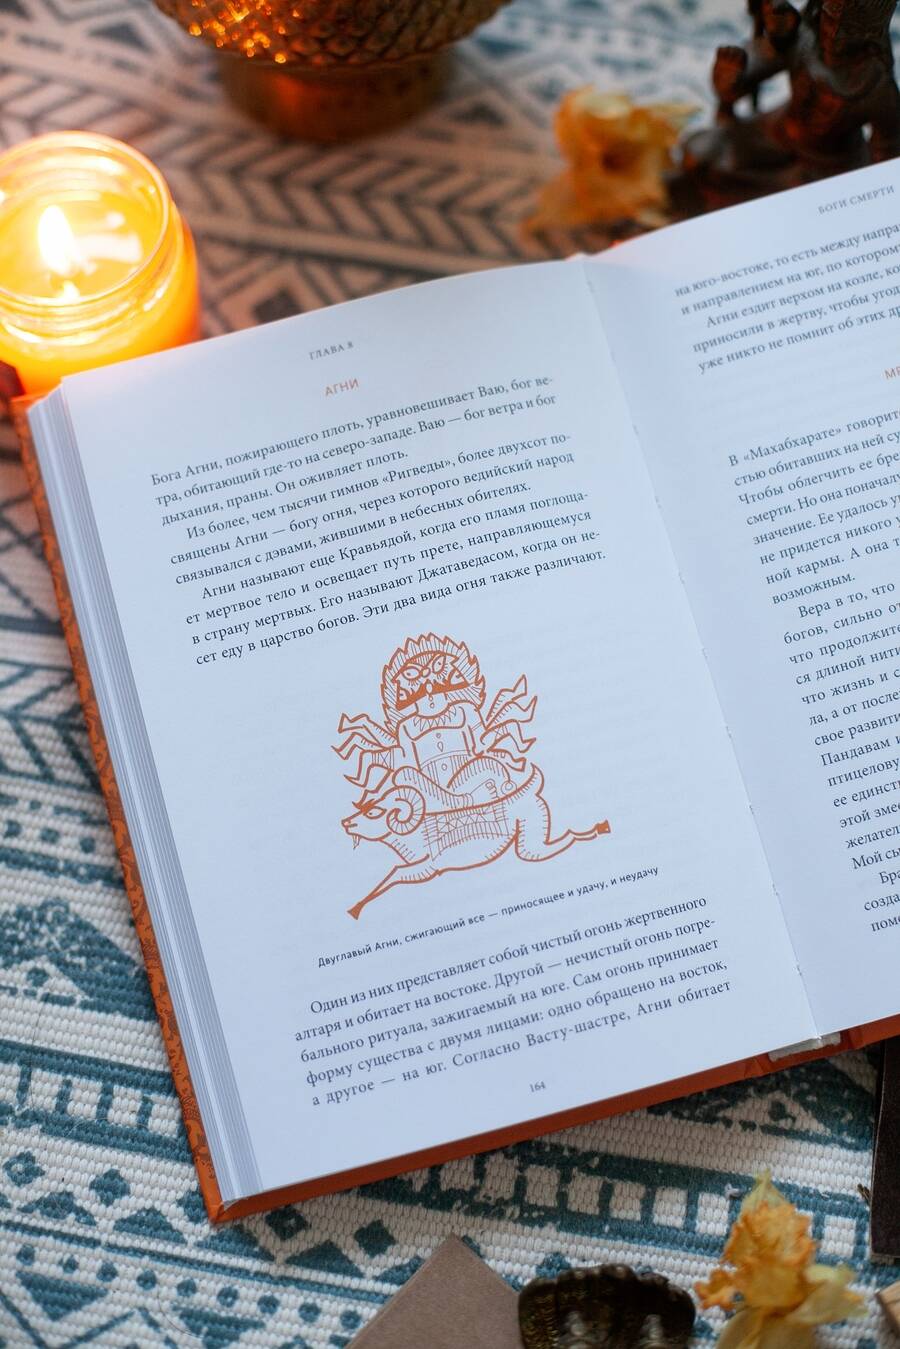 ГЛАВА 8
АГНИ
Бога Агни, пожирающего плоть, уравновешивает Ваю, бог ве-
тра, обитающий где-то на северо-западе. Ваю — бог ветра и бог
дыхания, праны. Он оживляет плоть.
Из более, чем тысячи гимнов «Ригведы», более двухсот по-
священы Агни — богу огня, через которого ведийский народ
связывался с дэвами, жившими в небесных обителях.
Агни называют еще Кравьядой, когда его пламя поглоща-
ет мертвое тело и освещает путь прете, направляющемуся
в страну мертвых. Его называют Джатаведасом, когда он не-
сет еду в царство богов. Эти два вида огня также различают.
Двуглавый Агни, сжигающий все — приносящее и удачу, и неудачу
Один из них представляет собой чистый огонь жертвенного
алтаря и обитает на востоке. Другой — нечистый огонь погре-
бального ритуала, зажигаемый на юге. Сам огонь принимает
форму существа с двумя лицами: одно обращено на восток,
а другое — на юг. Согласно Васту-шастре, Агни обитает
164
БОГИ СМЕРТИ
на юго-востоке, то есть между
и направлением на юг, по
Агни ездит верхом на козле,
приносили в жертву, чтобы
уже никто не помнит об этих
В «Махабхарате»
стью обитавших на ней
Чтобы облегчить ее
смерти. Но она
значение. Ее удалось
не придется никого
ной кармы. А она
возможным.
Вера в то, что
богов, сильно
что
ся длиной
что жизнь и
ла, а от
свое
Пандавам
ее
этой
Мой